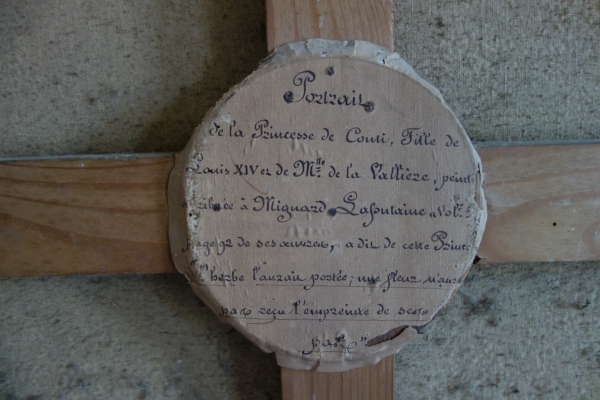 Portrait
de la Princesse de Conti, Fille de
Louis XIV et de Mlle de la Vallière, peint
à Mignard Lafontaine a Vol.
page 92 de ses œuvres, a dit de cette Princ
l'herbe l'aurait portée; une fleur n'aurait
pas reçu l'empreinte de ses
pas"